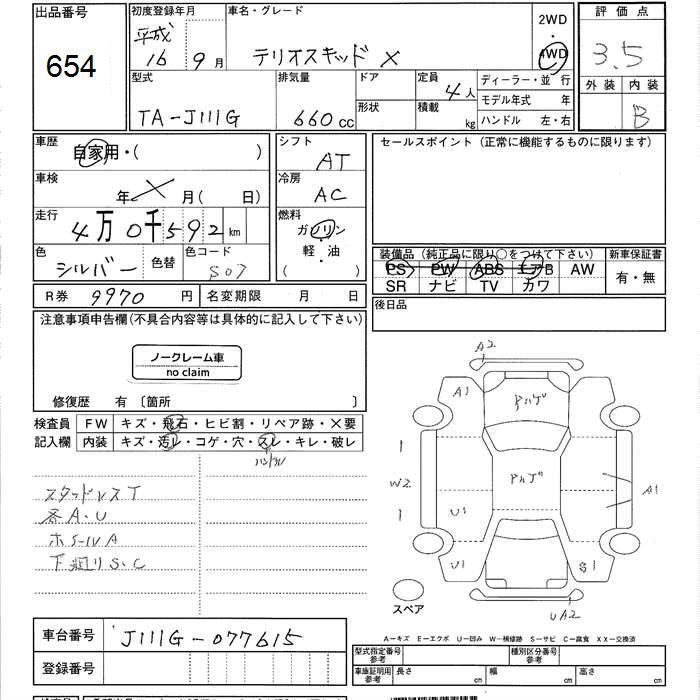 出品番号
654
初度登録年月
平成
16 9月
車名・グレード
テリオスキッド X
2WD
・
4WD
評価点
3.5
外装 内装
B
型式
TA-J111G
排気量
660cc
ドア
形状
定員
4人
積載
kg
ディーラー・並行
モデル年式 年
ハンドル 左・右
車歴
自家用・( )
シフト
AT
セールスポイント (正常に機能するものに限ります)
車検
年 月(日)
冷房
AC
走行
4万0千592km
燃料
ガソリン
軽・油
( )
色
シルバー
色替
色コード
S07
装備品 (純正品に限り○をつけて下さい)
PS PW ABS エアB AW
SR ナビ TV カワ
新車保証書
有・無
R券 9970円
名変期限 月 日
後日品
注意事項申告欄(不具合内容等は具体的に記入して下さい)
ノークレーム車
no claim
修復歴 有 〔箇所 〕
検査員
記入欄
FW キズ・飛石・ヒビ割・リペア跡・X要
内装 キズ・汚レ・コゲ・穴・スレ・キレ・破レ
ハンドル
スタッドレスT
各A.U
ホイールA
下廻りS.C
A2
A1
1
W2
1
U1
U1
A1
S1
UA2
スペア
A−キズ E−エクボ U−凹み W−補修跡 S−サビ C−腐食 XX−交換済
車台番号
J111G-077615
登録番号
型式指定番号
参考
種別区分番号
参考
車庫証明用
参考
長さ cm
幅 cm
高さ cm